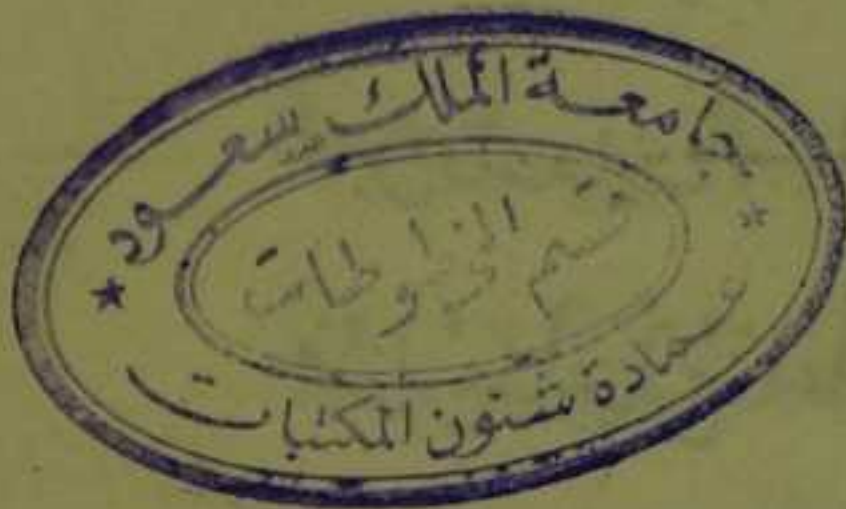 جامعة الملك سعود
قسم المخطوطات
عمادة شئون المكتبات